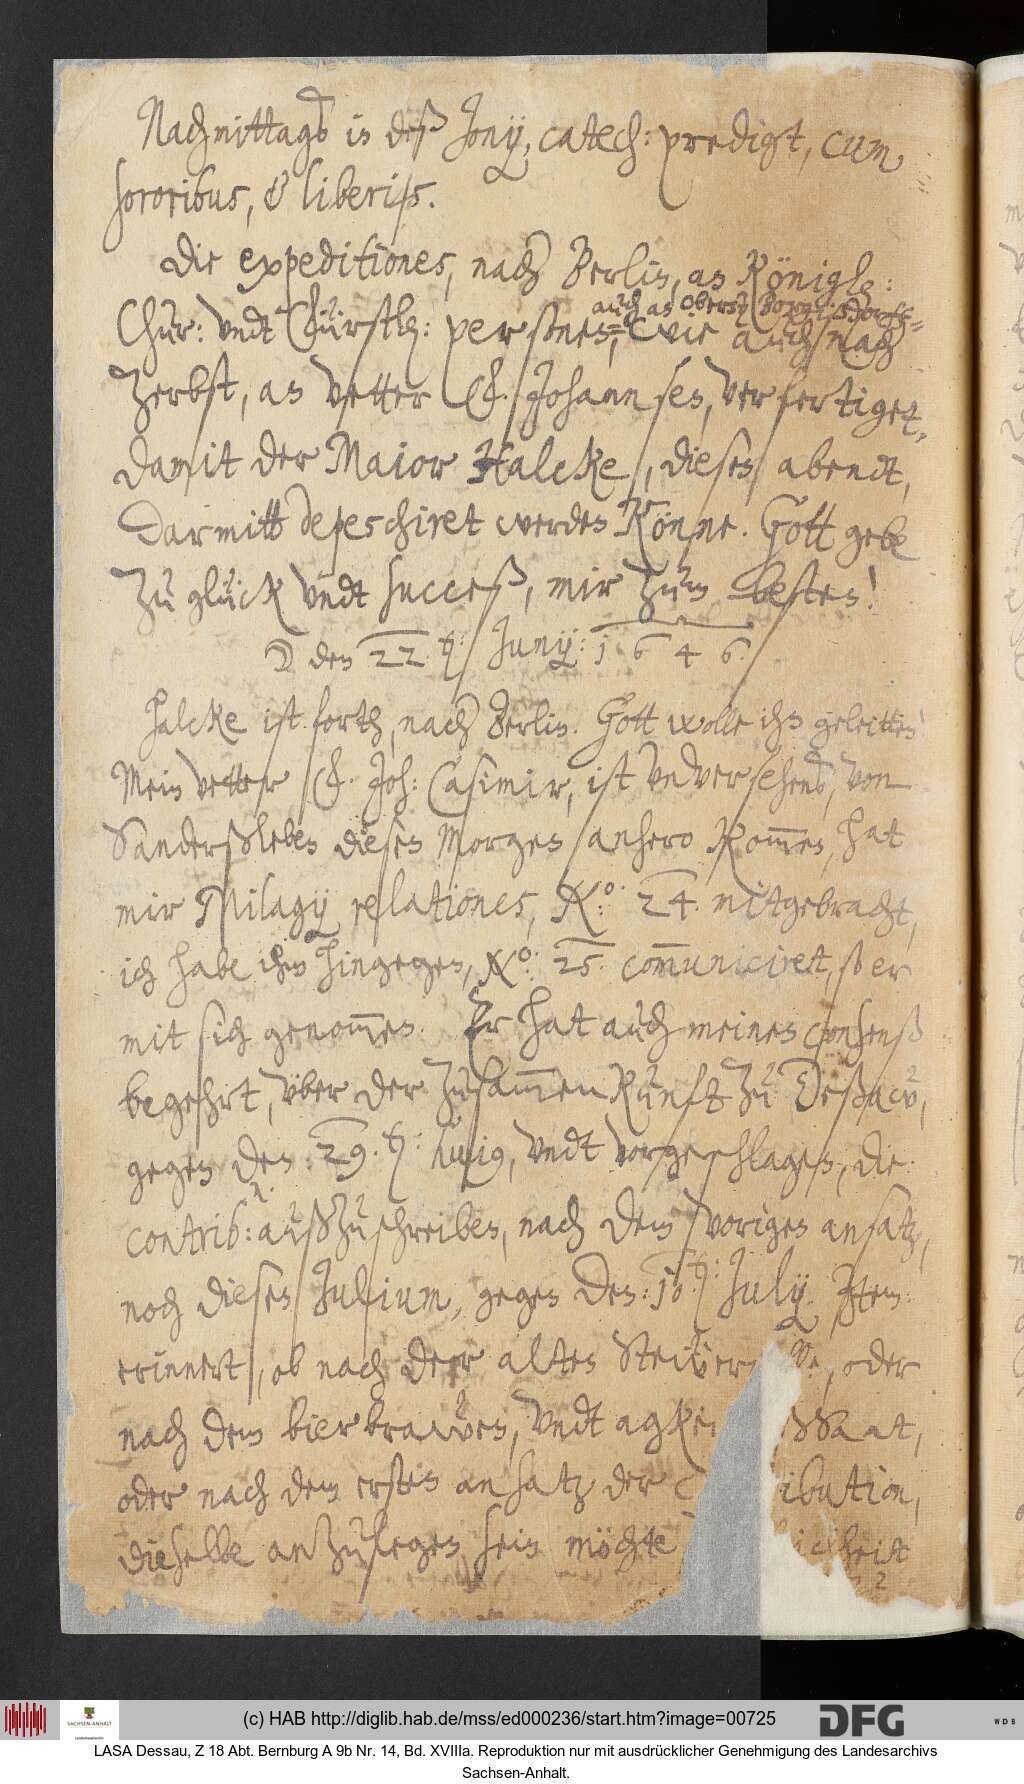 Nachmittags in deß Jonij, catech: predigt, cum
sororibus, & liberis.
Die expeditiones, nach Berlin, an Königl:
auch an Oberst Borgißdorff
Chur: undt Fürstl: personen, wie auch nach
Zerbst, an Vetter Johannsen, verfertiget,
damit der Maior Halcke, diesen abendt,
darmitt depeschiret werden könne. Gott gebe
zu glück undt succeß, mir zum besten!
☽ den 22.ten Junij: 1646.
Halcke ist forth, nach Berlin. Gott wolle ihn geleitten!
Mein vetter F. Joh: Casimir, ist unversehens, von
Sanderßleben diesen Morgen anhero kommen, hat
mir Milagij relationes, No: 24. mitgebracht,
ich habe ihm hingegen, No: 25. communiciret, so er
mit sich genommen. Er hat auch meinen consenß
begehrt, über der Zusammenkunft zu Deßaw,
gegen den: 29.ten huius, undt vorgeschlagen, die
contrib: außzuschreiben, nach dem vorigen ansatz,
noch diesen Julium, gegen den: 10ten: July. Item:
erinnert, ob nach der alten Steüer, oder
nach dem bierbrawen, undt Saat,
oder nach dem ersten ansatz der ibution,
dieselbe anzulegen sein möchte
(c) HAB http://diglib.hab.de/mss/ed000236/start.htm?image=00725
SACHSEN-ANHALT
DFG
WDB
LASA Dessau, Z 18 Abt. Bernburg A 9b Nr. 14, Bd. XVIIIa. Reproduktion nur mit ausdrücklicher Genehmigung des Landesarchivs
Sachsen-Anhalt.